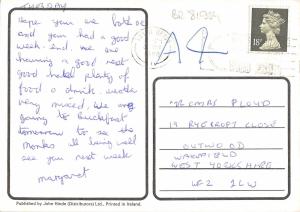 TUESDAY
Hope you are both ok
and you had a good
week-end. we are
having a good rest
good hotel plenty of
food & drink. weather
very mixed. We are
going to Buckfast
tomorrow to see the
monks. being well
see you next week
margaret
Published by John Hinde (Distributors) Ltd., Printed in Ireland.
18
MR & MRS FLOYD
19 RYECROFT CLOSE
OUTWOOD
WAKEFIELD
WEST YORKSHIRE
WF2 1LW